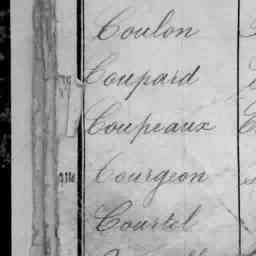 Coulon
Coupard
Coupeaux
Courgeon
Courtel